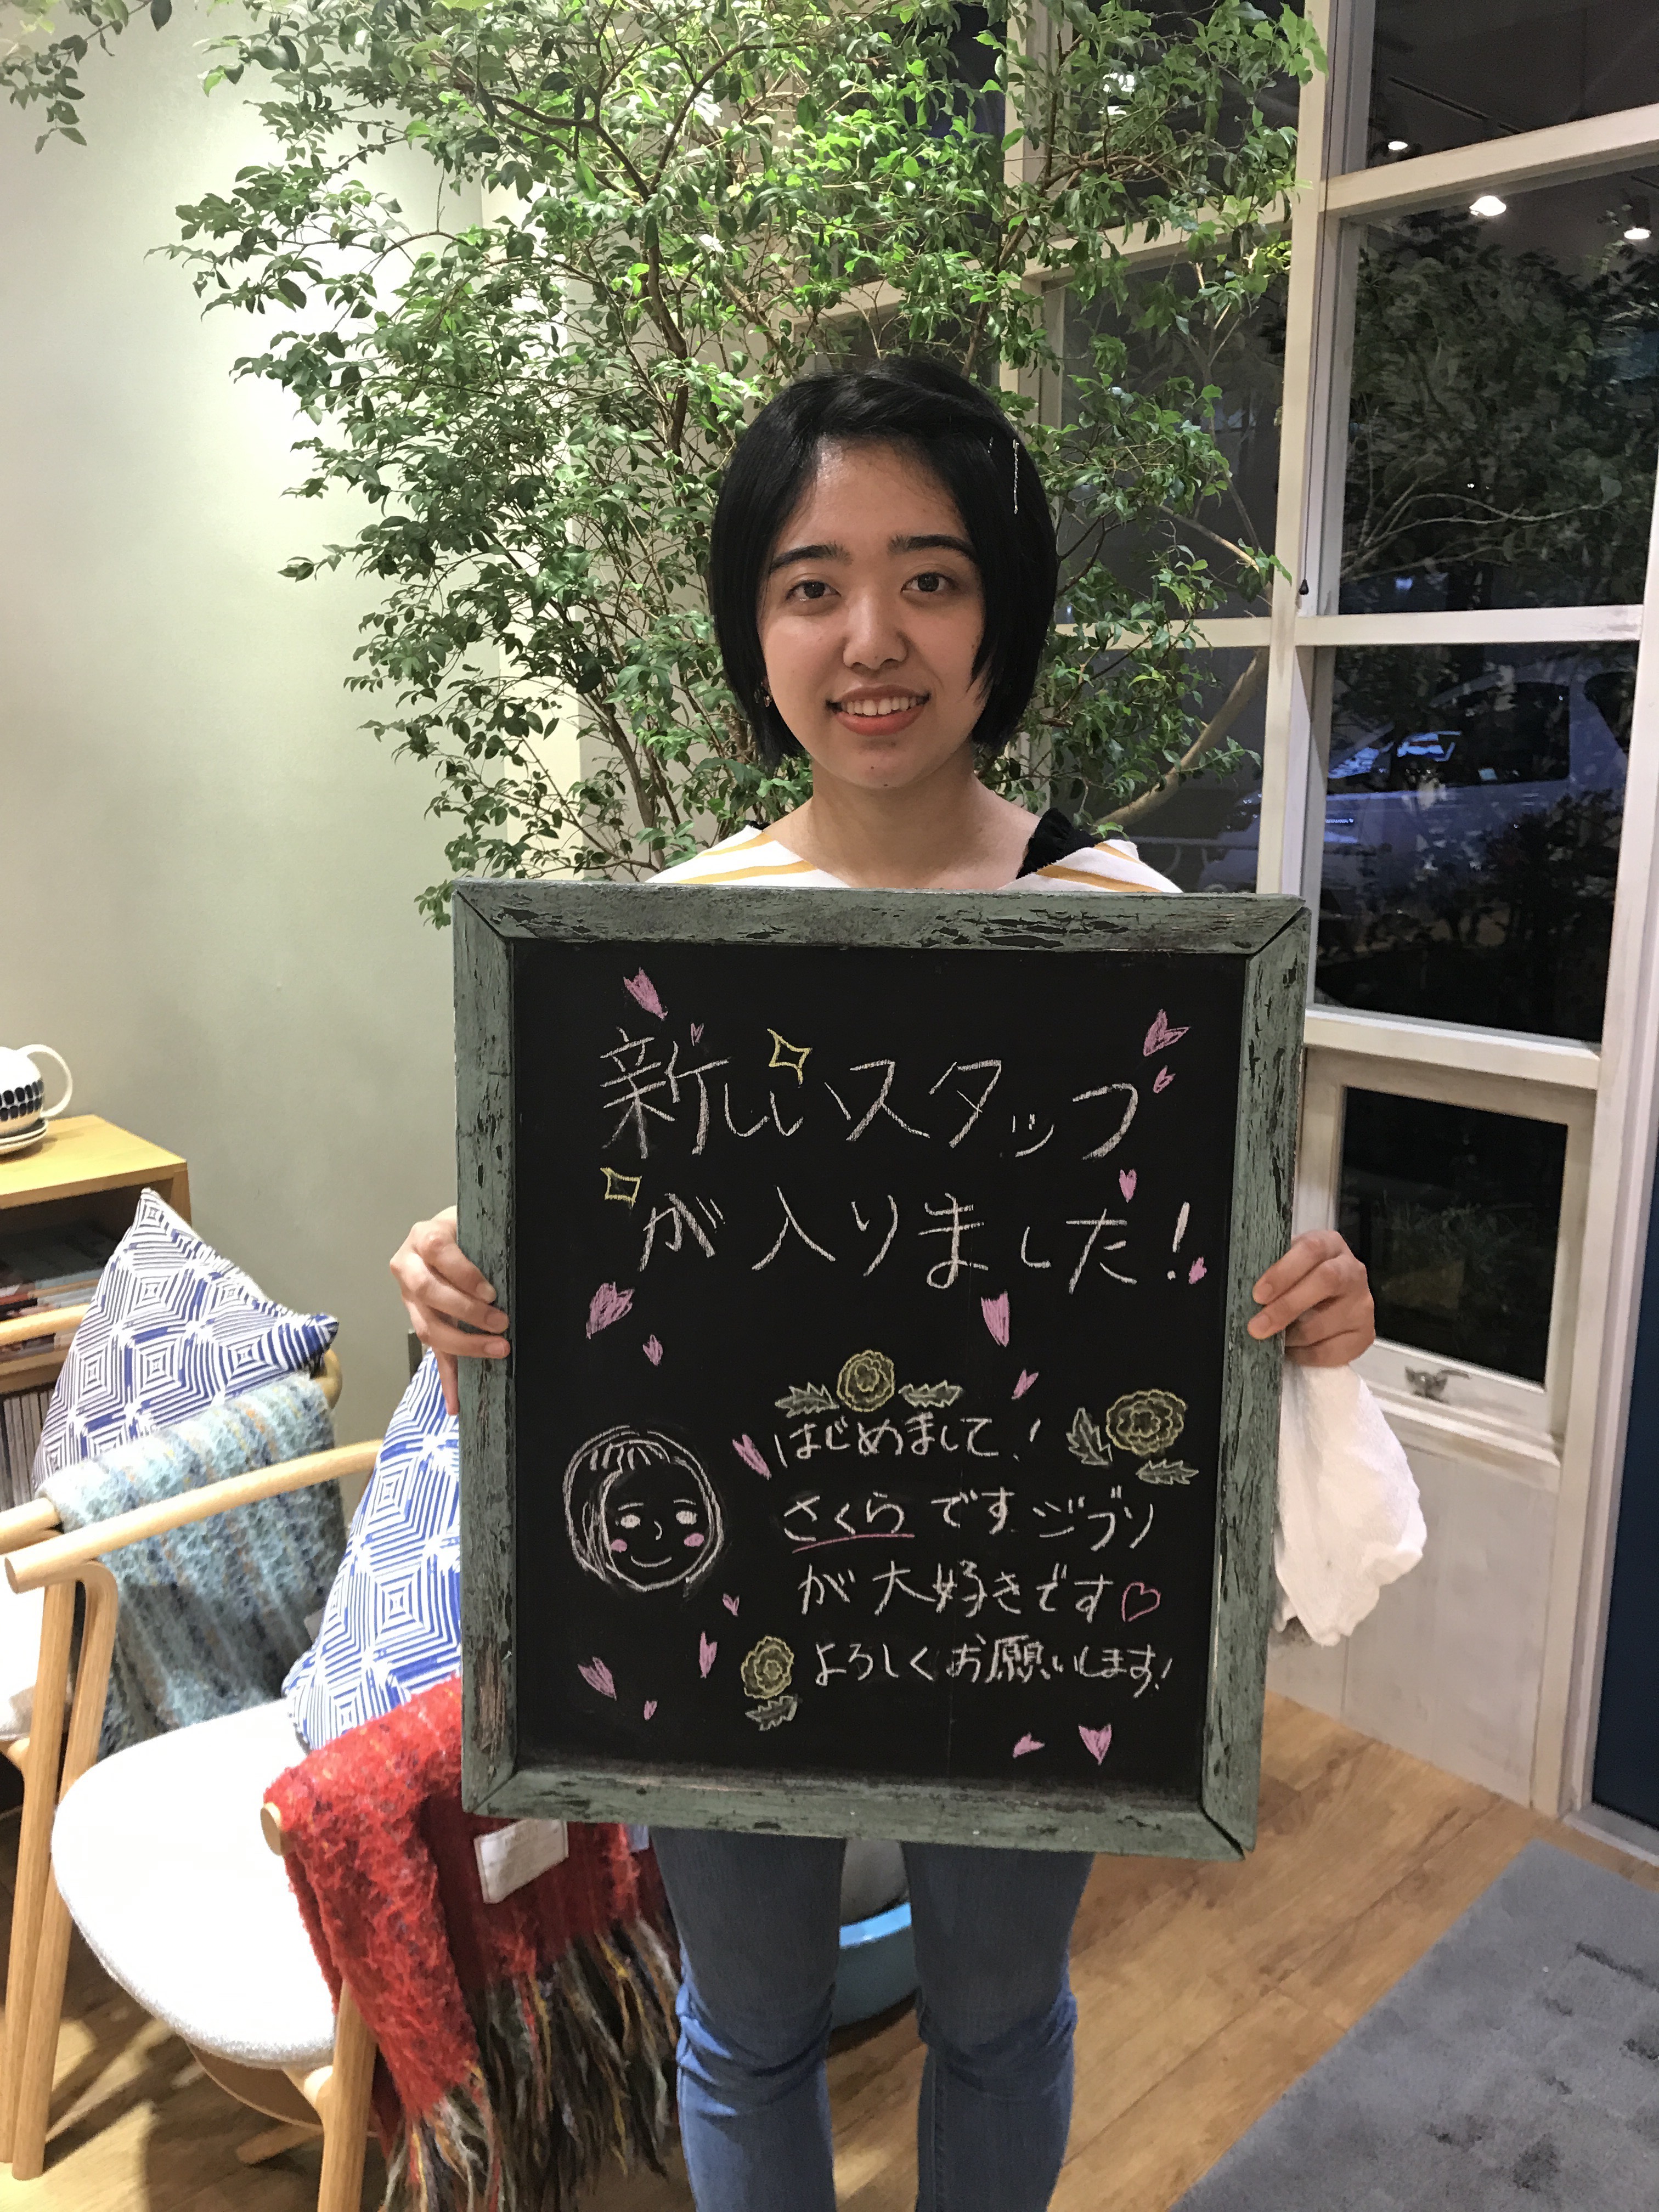 新しいスタッフ
が入りました!
はじめまして!
さくらです。ジブリ
が大好きです♡
よろしくお願いします!